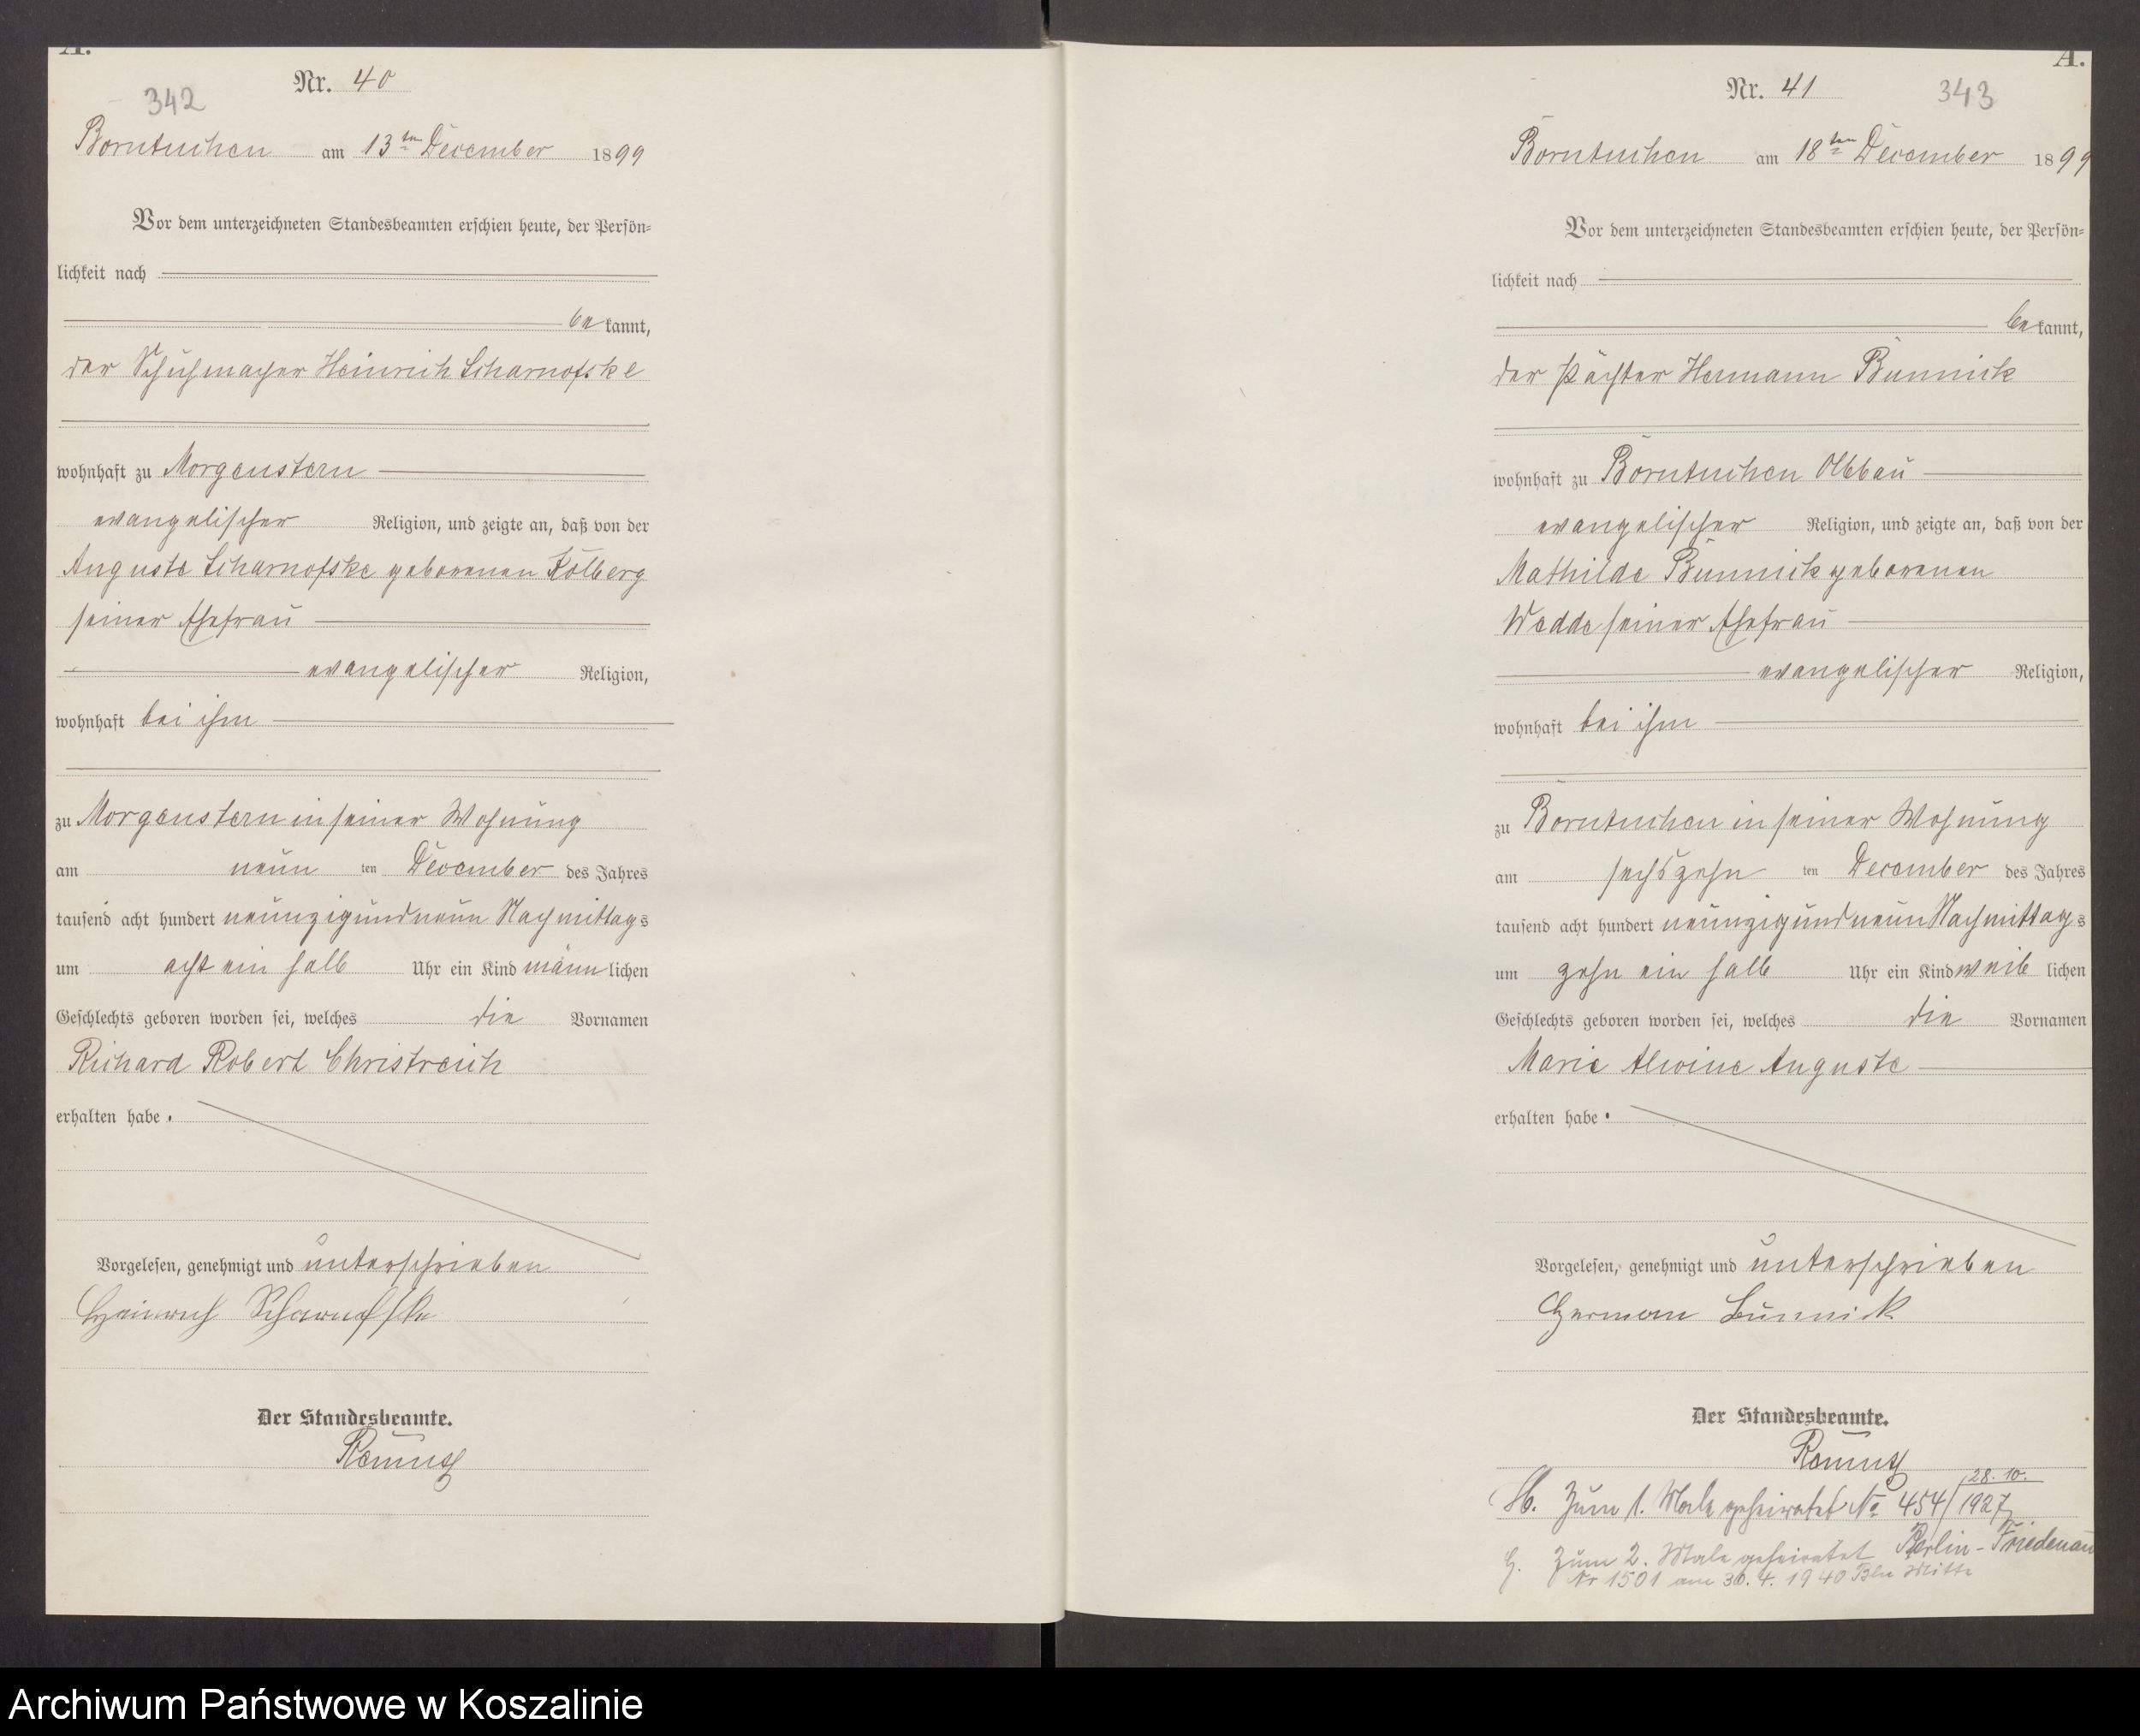 A.
342
Nr. 40
Borntuchen am 13ten December 1899
Vor dem unterzeichneten Standesbeamten erschien heute, der Persön-
lichkeit nach
bekannt,
der Schuhmacher Heinrich Scharnofske
wohnhaft zu Morgenstern
evangelischer Religion, und zeigte an, daß von der
Auguste Scharnofske geborenen Kölberg
seiner Ehefrau
evangelischer Religion,
wohnhaft bei ihm
zu Morgenstern in seiner Wohnung
am neun ten December des Jahres
tausend acht hundert neunzig und neun Nachmittags
um acht ein halb Uhr ein Kind männlichen
Geschlechts geboren worden sei, welches die Vornamen
Richard Robert Christreich
erhalten habe.
Vorgelesen, genehmigt und unterschrieben
Heinrich Scharnofske
Der Standesbeamte.
A.
Nr. 41
343
Borntuchen am 18ten December 1899
Vor dem unterzeichneten Standesbeamten erschien heute, der Persön-
lichkeit nach
bekannt,
der Pächter Hermann Bunnick
wohnhaft zu Borntuchen Abbau
evangelischer Religion, und zeigte an, daß von der
Mathilde Bunnick geborenen
Wedde seiner Ehefrau
evangelischer Religion,
wohnhaft bei ihm
zu Borntuchen in seiner Wohnung
am sechszehn ten December des Jahres
tausend acht hundert neunzig und neun Nachmittags
um zehn ein halb Uhr ein Kind weiblichen
Geschlechts geboren worden sei, welches die Vornamen
Marie Alwine Auguste
erhalten habe.
Vorgelesen, genehmigt und unterschrieben
Herman Bunnick
Der Standesbeamte.
28. 10.
Zum 1. Male geheiratet No 454/1927
Berlin-Friedenau
Zum 2. Male geheiratet
Nr 1501 am 30. 4. 1940 Bln Mitte
Archiwum Państwowe w Koszalinie